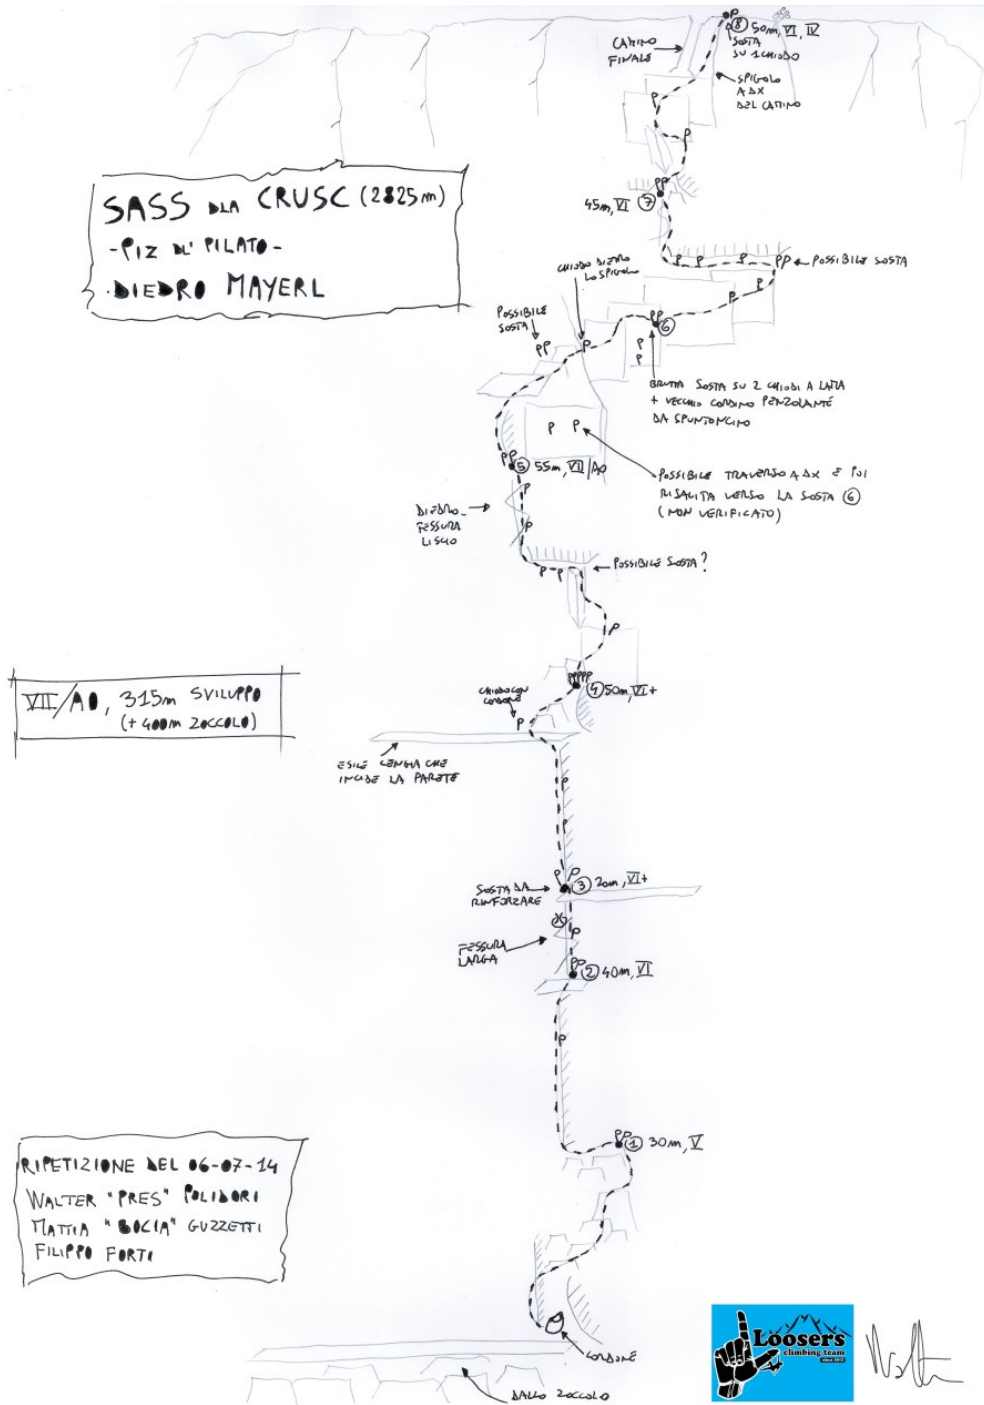 CAMINO
FINALE
8 50m, VI, IV
SOSTA
SU 1 CHIODO
SPIGOLO
A DX
DEL CAMINO
SASS DLA CRUSC (2825m)
- PIZ DL' PILATO -
- DIEDRO MAYERL
P
P
PP
45m, VI 7
P P P PP
POSSIBILE SOSTA
CHIODO DIETRO
LO SPIGOLO
P P
POSSIBILE
SOSTA
PP
P
PP
6
P
P
BRUTTA SOSTA SU 2 CHIODI A LAMA
+ VECCHIO CORDINO PENZOLANTE
DA SPUNTONCINO
P P
PP
5 55m, VII/A0
POSSIBILE TRAVERSO A DX E POI
RISALITA VERSO LA SOSTA 6
(NON VERIFICATO)
P
DIEDRO-
FESSURA
LISCIO
P
P P
POSSIBILE SOSTA?
P
PPPPP
4 50m, VI+
VII/A0, 315m SVILUPPO
(+ 400m ZOCCOLO)
CHIODO CON
CORDONE
P
ESILE CENGIA CHE
INCIDE LA PARETE
P
P
P P
SOSTA DA
RINFORZARE
3 20m, VI+
P
FESSURA
LARGA
PP
2 40m, VI
P
PP
1 30m, V
RIPETIZIONE DEL 06-07-14
WALTER "PRES" POLIDORI
MATTIA "BOCIA" GUZZETTI
FILIPPO FORTI
CORDONE
DALLO ZOCCOLO
Loosers
climbing team
since 2012